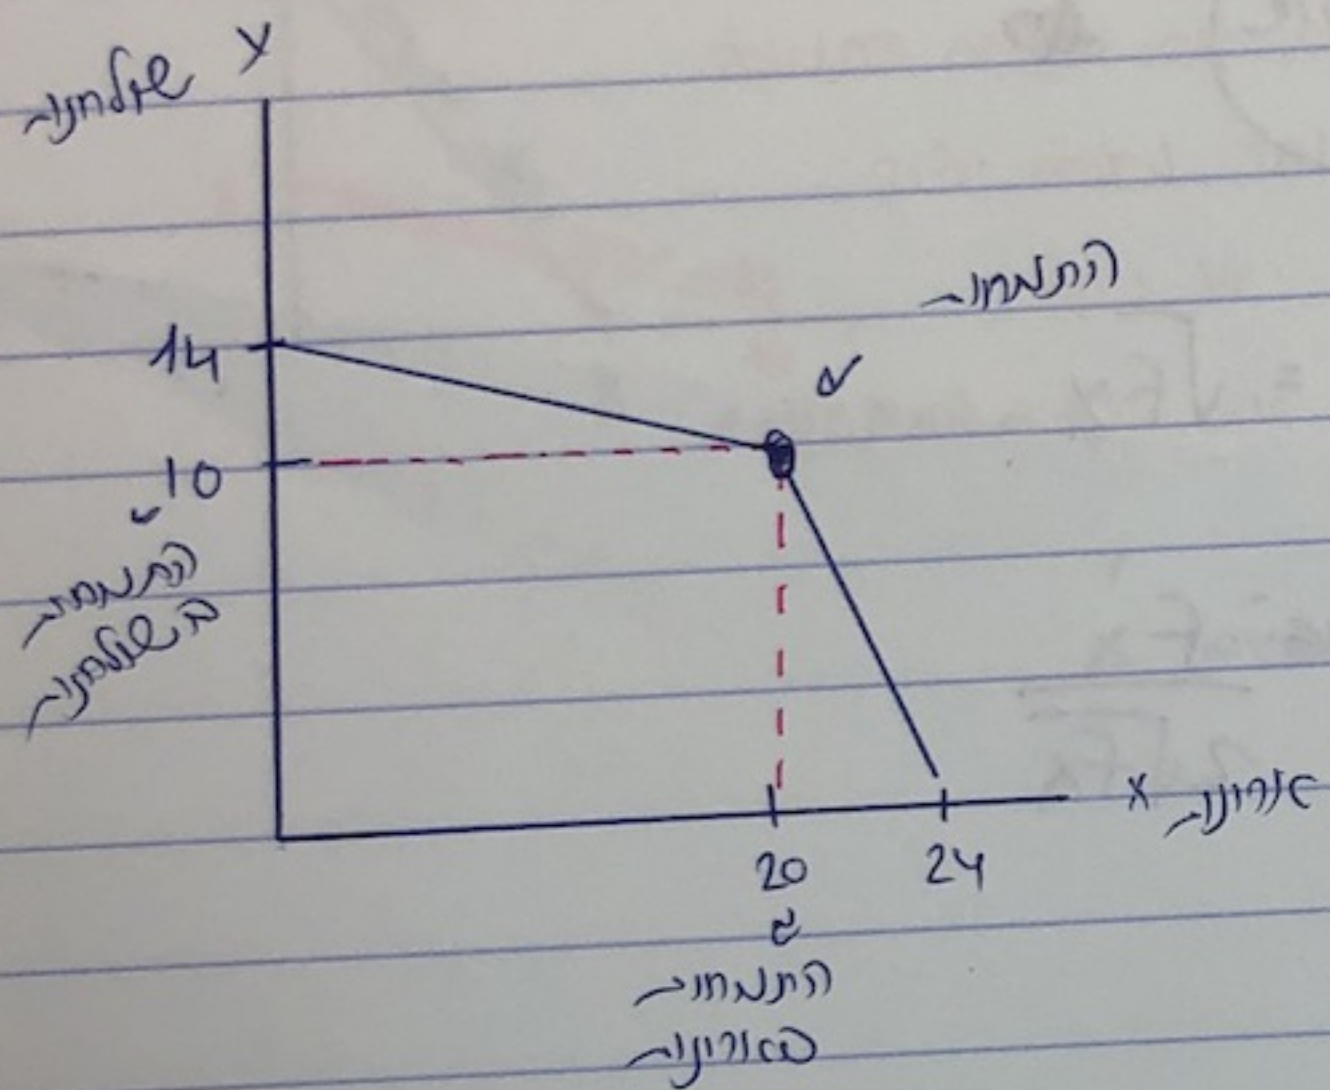 שולחנות y
התמחות
14
10
התמחות
בשולחנות
ארונות x
20 24
התמחות
בארונות